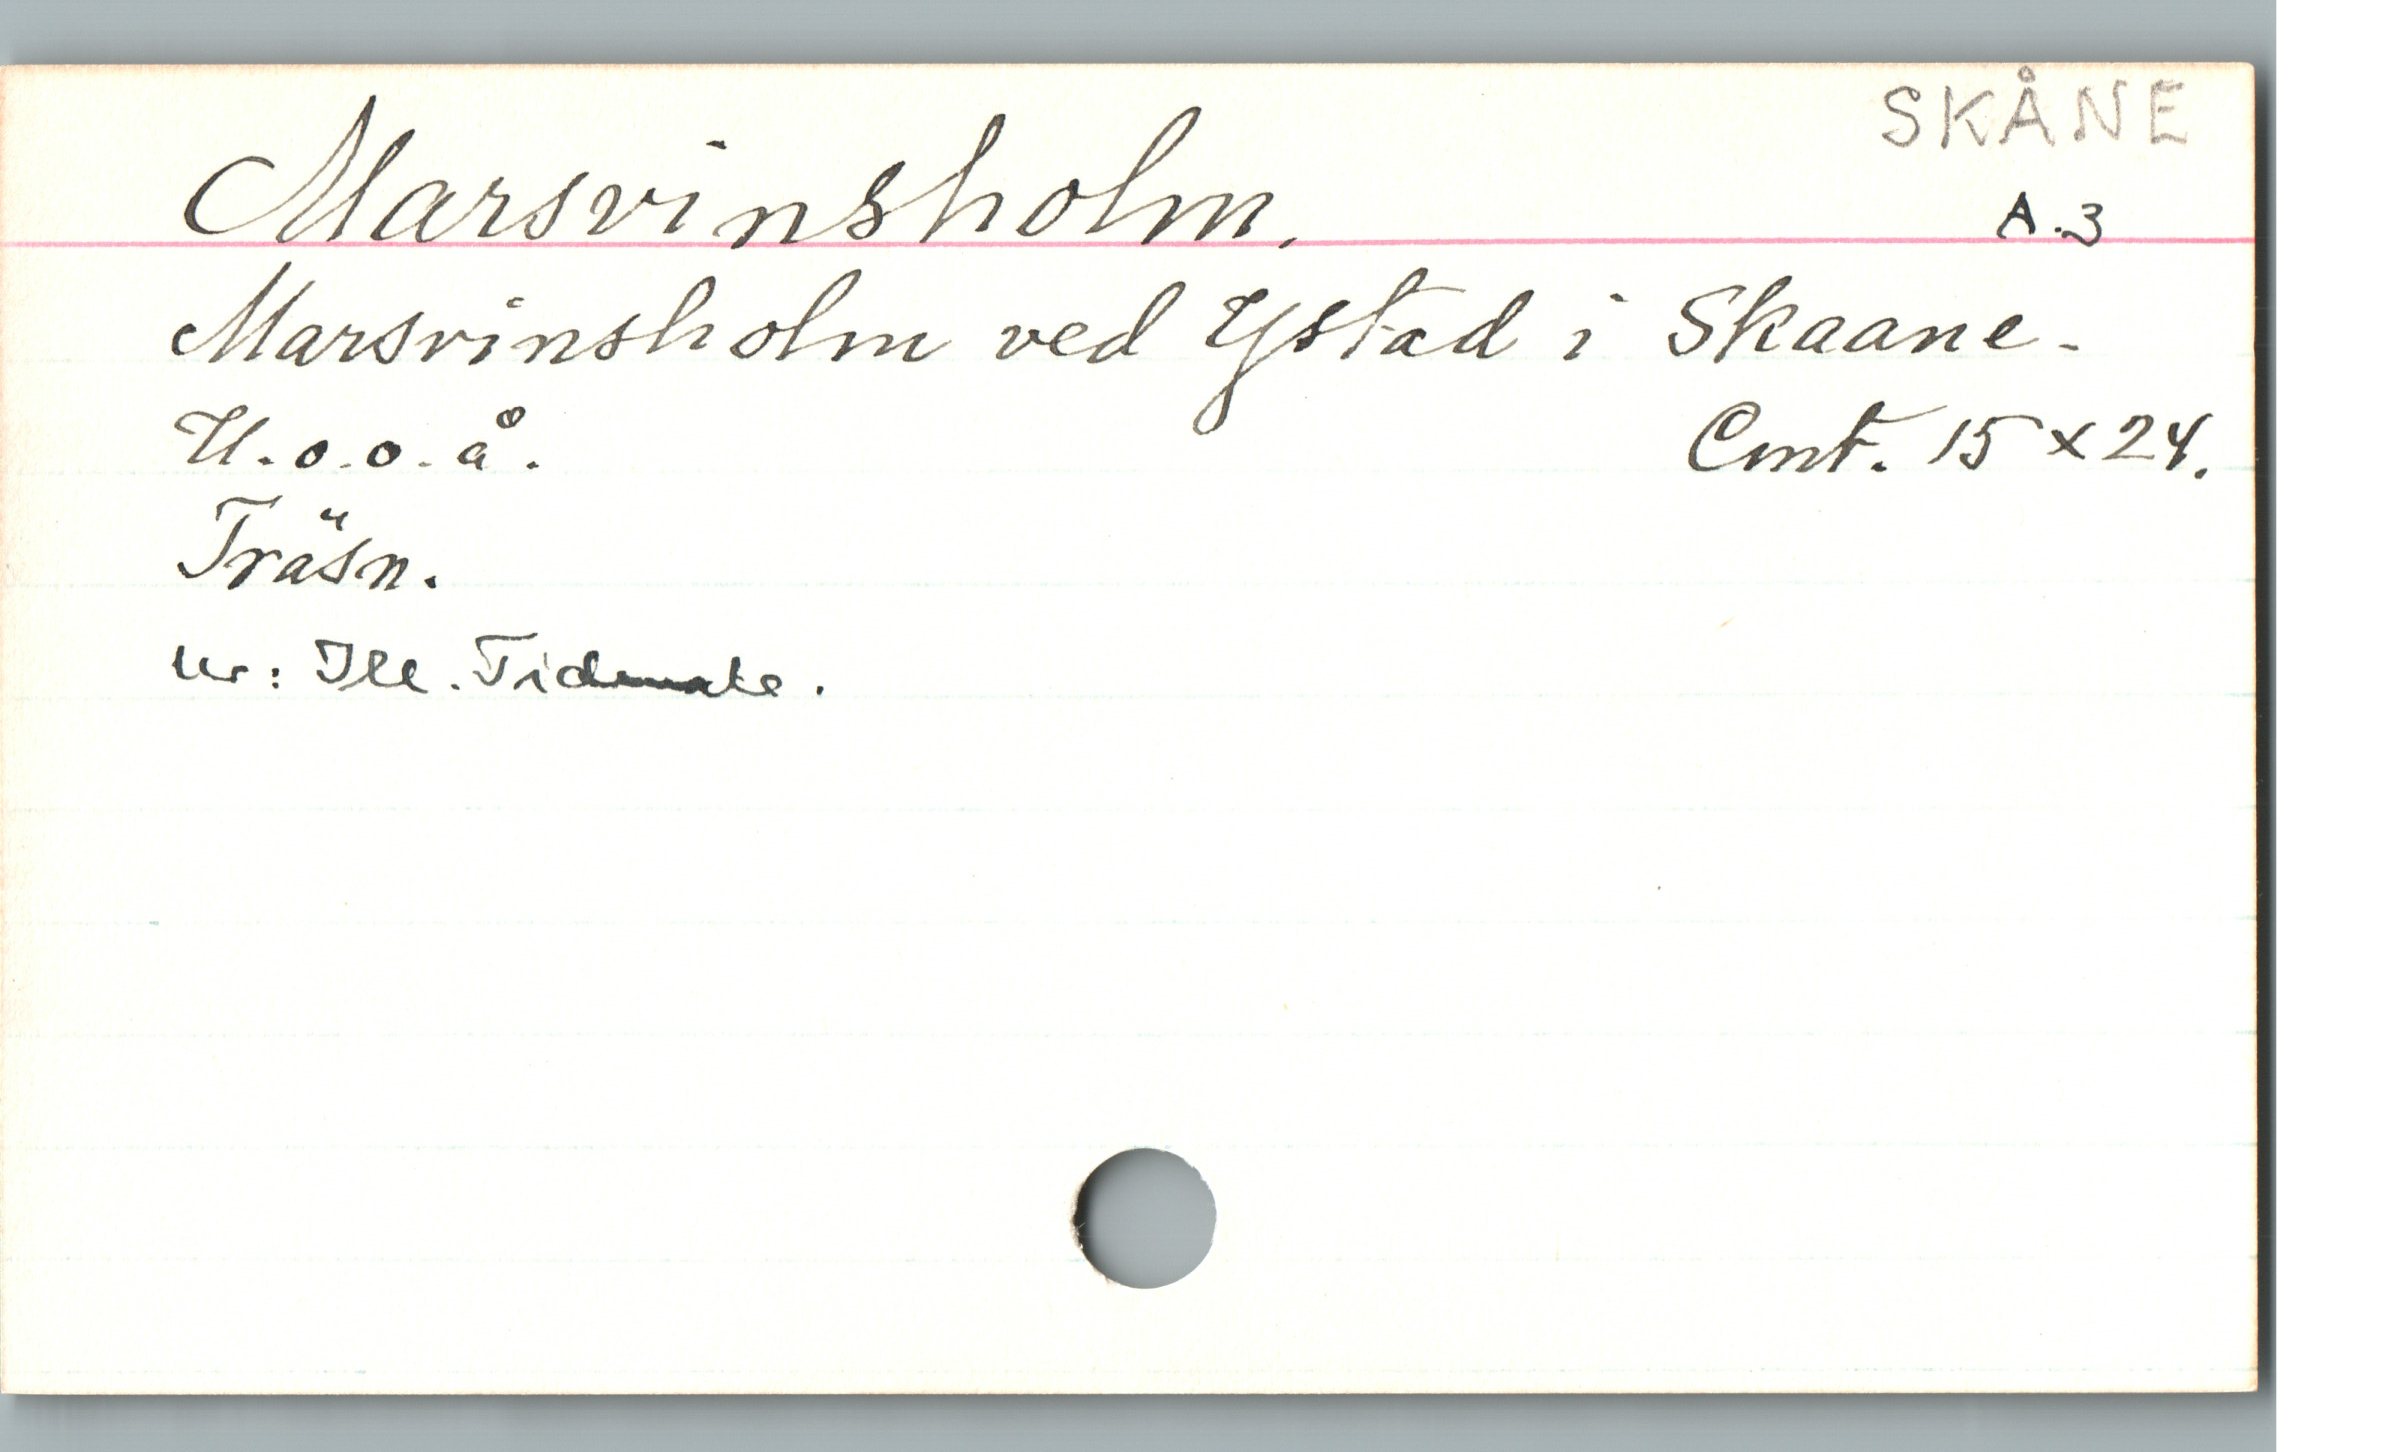 SKÅNE
Marsvinsholm.
A.3
Marsvinsholm ved Ystad i Skaane.
U.o.o.å. Cmt. 15 x 24.
Träsn.
Ur: Ill.